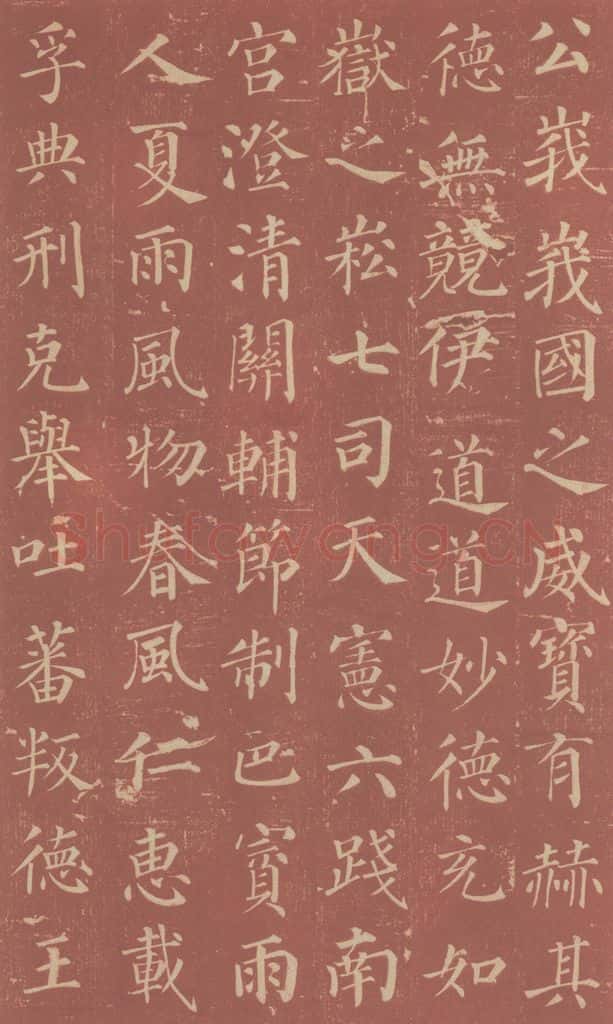 公峩峩國之威寶有赫其
德無競伊道道妙德充如
嶽之崧七司天憲六踐南
宮澄清關輔節制巴賨雨
人夏雨風物春風仁惠載
孚典刑克舉吐蕃叛德王
Shufawang.CN